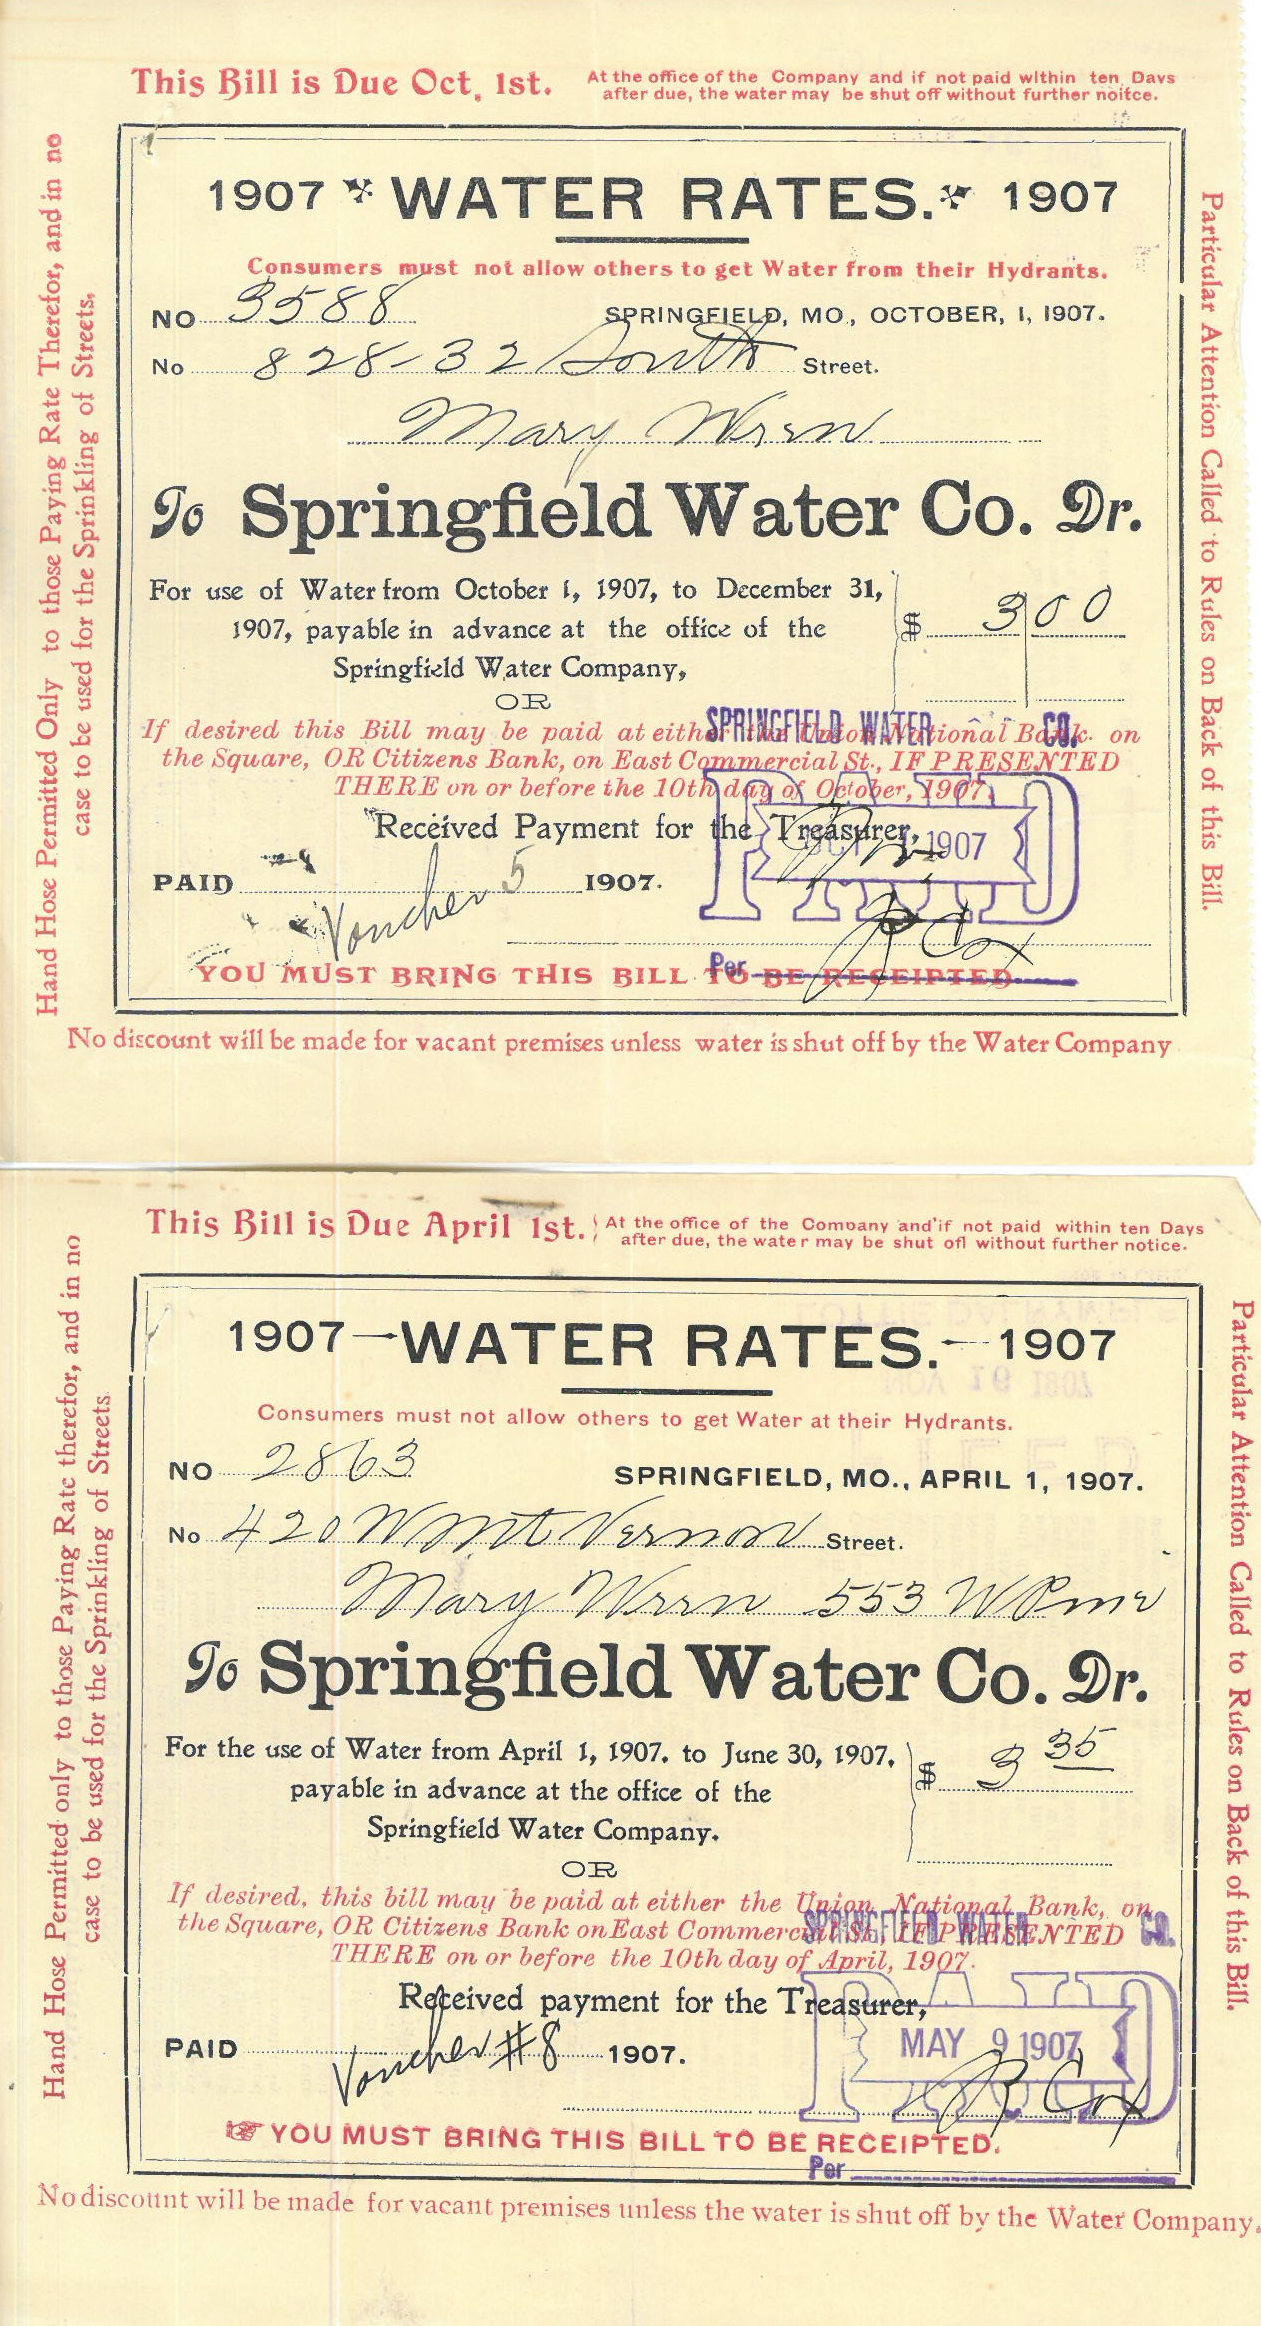 This Bill is Due Oct, 1st. At the office of the Company and if not paid within ten Days
after due, the water may be shut off without further noitce.
Hand Hose Permitted Only to those Paying Rate Therefor, and in no
case to be used for the Sprinkling of Streets,
1907 WATER RATES. 1907
Consumers must not allow others to get Water from their Hydrants.
NO 3588 SPRINGFIELD, MO., OCTOBER, 1, 1907.
No 828-32 South Street.
Mary Wren
To Springfield Water Co. Dr.
For use of Water from October 1, 1907, to December 31,
1907, payable in advance at the office of the
Springfield Water Company,
$ 3 00
OR
If desired this Bill may be paid at either the Union National Bank on
the Square, OR Citizens Bank, on East Commercial St., IF PRESENTED
THERE on or before the 10th day of October, 1907.
SPRINGFIELD WATER CO.
Received Payment for the Treasurer,
PAID 1907
PAID Voucher 5 1907.
R Cox
Per
YOU MUST BRING THIS BILL TO BE RECEIPTED.
No discount will be made for vacant premises unless water is shut off by the Water Company
Particular Attention Called to Rules on Back of this Bill.
This Bill is Due April 1st. At the office of the Company and if not paid within ten Days
after due, the water may be shut off without further notice.
Hand Hose Permitted only to those Paying Rate therefor, and in no
case to be used for the Sprinkling of Streets
1907 — WATER RATES. — 1907
Consumers must not allow others to get Water at their Hydrants.
NO 2863 SPRINGFIELD, MO., APRIL 1, 1907.
No 420 W Mt Vernon Street.
Mary Wren 553 W
To Springfield Water Co. Dr.
For the use of Water from April 1, 1907, to June 30, 1907,
payable in advance at the office of the
Springfield Water Company.
$ 3 35
OR
If desired, this bill may be paid at either the Union National Bank, on
the Square, OR Citizens Bank on East Commercial St. IF PRESENTED
THERE on or before the 10th day of April, 1907.
SPRINGFIELD WATER CO.
Received payment for the Treasurer,
PAID MAY 9 1907
PAID Voucher #8 1907.
R Cox
YOU MUST BRING THIS BILL TO BE RECEIPTED.
Per
No discount will be made for vacant premises unless the water is shut off by the Water Company.
Particular Attention Called to Rules on Back of this Bill.